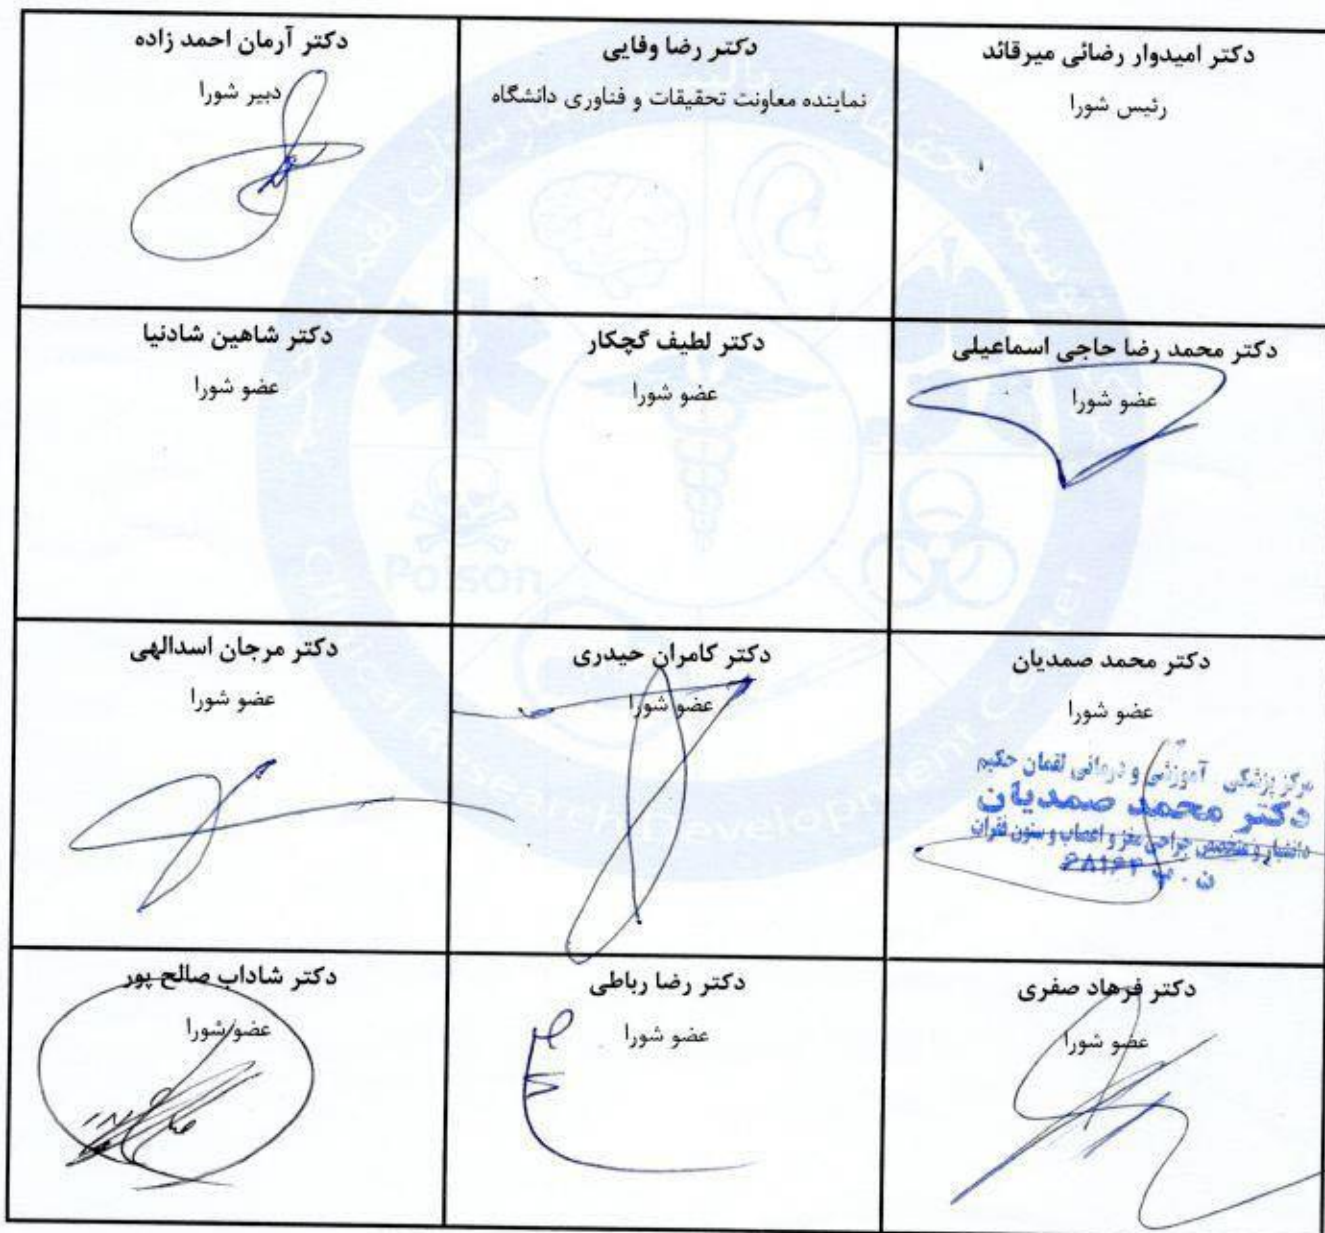 دکتر امیدوار رضائی میرقائد
رئیس شورا
دکتر رضا وفایی
نماینده معاونت تحقیقات و فناوری دانشگاه
دکتر آرمان احمد زاده
دبیر شورا
دکتر محمد رضا حاجی اسماعیلی
عضو شورا
دکتر لطیف گچکار
عضو شورا
دکتر شاهین شادنیا
عضو شورا
دکتر محمد صمدیان
عضو شورا
مرکز پزشکی آموزشی و درمانی لقمان حکیم
دکتر محمد صمدیان
دانشیار و متخصص جراحی مغز و اعصاب و ستون فقرات
دکتر کامران حیدری
عضو شورا
دکتر مرجان اسدالهی
عضو شورا
دکتر فرهاد صفری
عضو شورا
دکتر رضا رباطی
عضو شورا
دکتر شاداب صالح پور
عضو شورا
Poison
Research Development Center